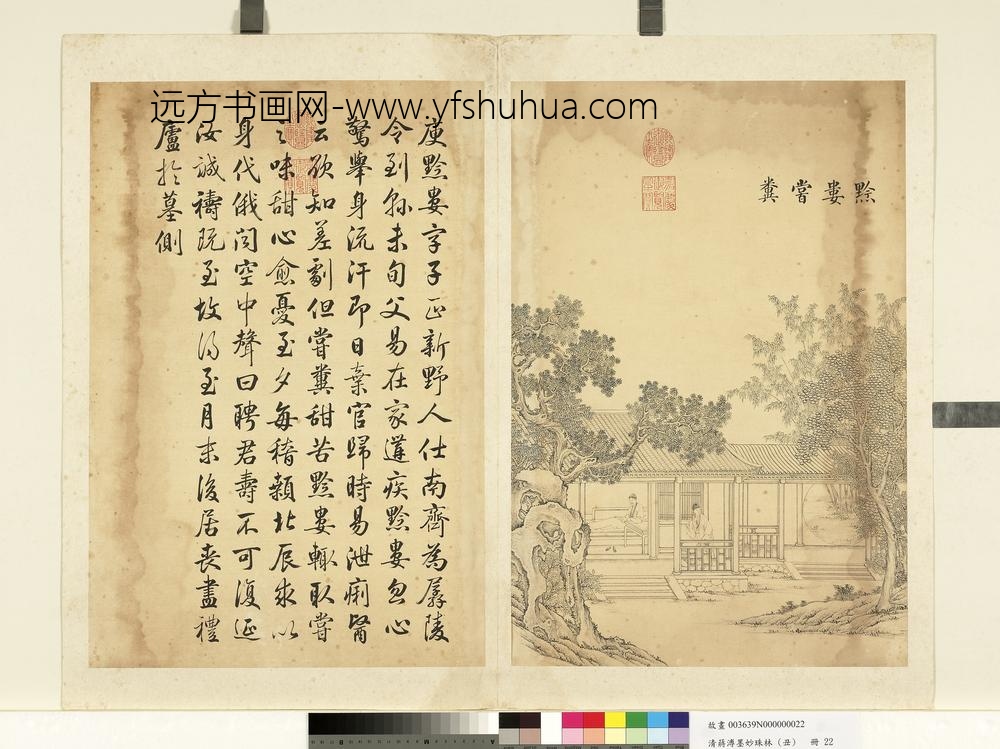 远方书画网-www.yfshuhua.com
黔婁嘗糞
庾黔婁字子正新野人仕南齊為孱陵
令到縣未旬父易在家遘疾黔婁忽心
驚舉身流汗即日棄官歸時易泄痢醫
云欲知差劇但嘗糞甜苦黔婁輒取嘗
之味甜心愈憂至夕每稽顙北辰求以
身代俄聞空中聲曰聘君壽不可復延
汝誠禱既至故得至月末後居喪盡禮
廬於墓側
故畫 003639N000000022
清蔣溥墨妙珠林（丑） 冊 22